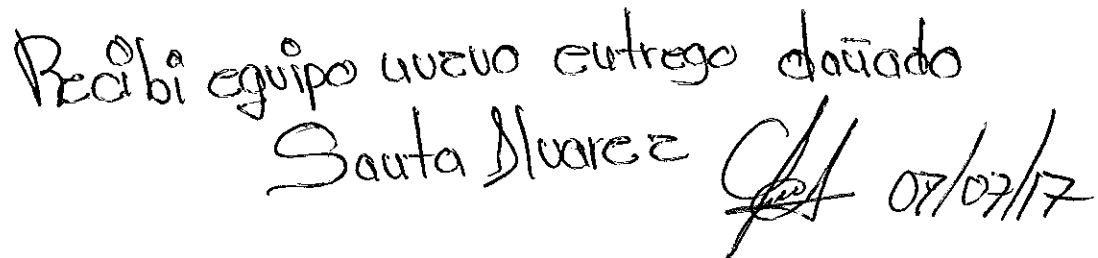 Recibi equipo nuevo entrego dañado
Santa Alvarez 07/07/17